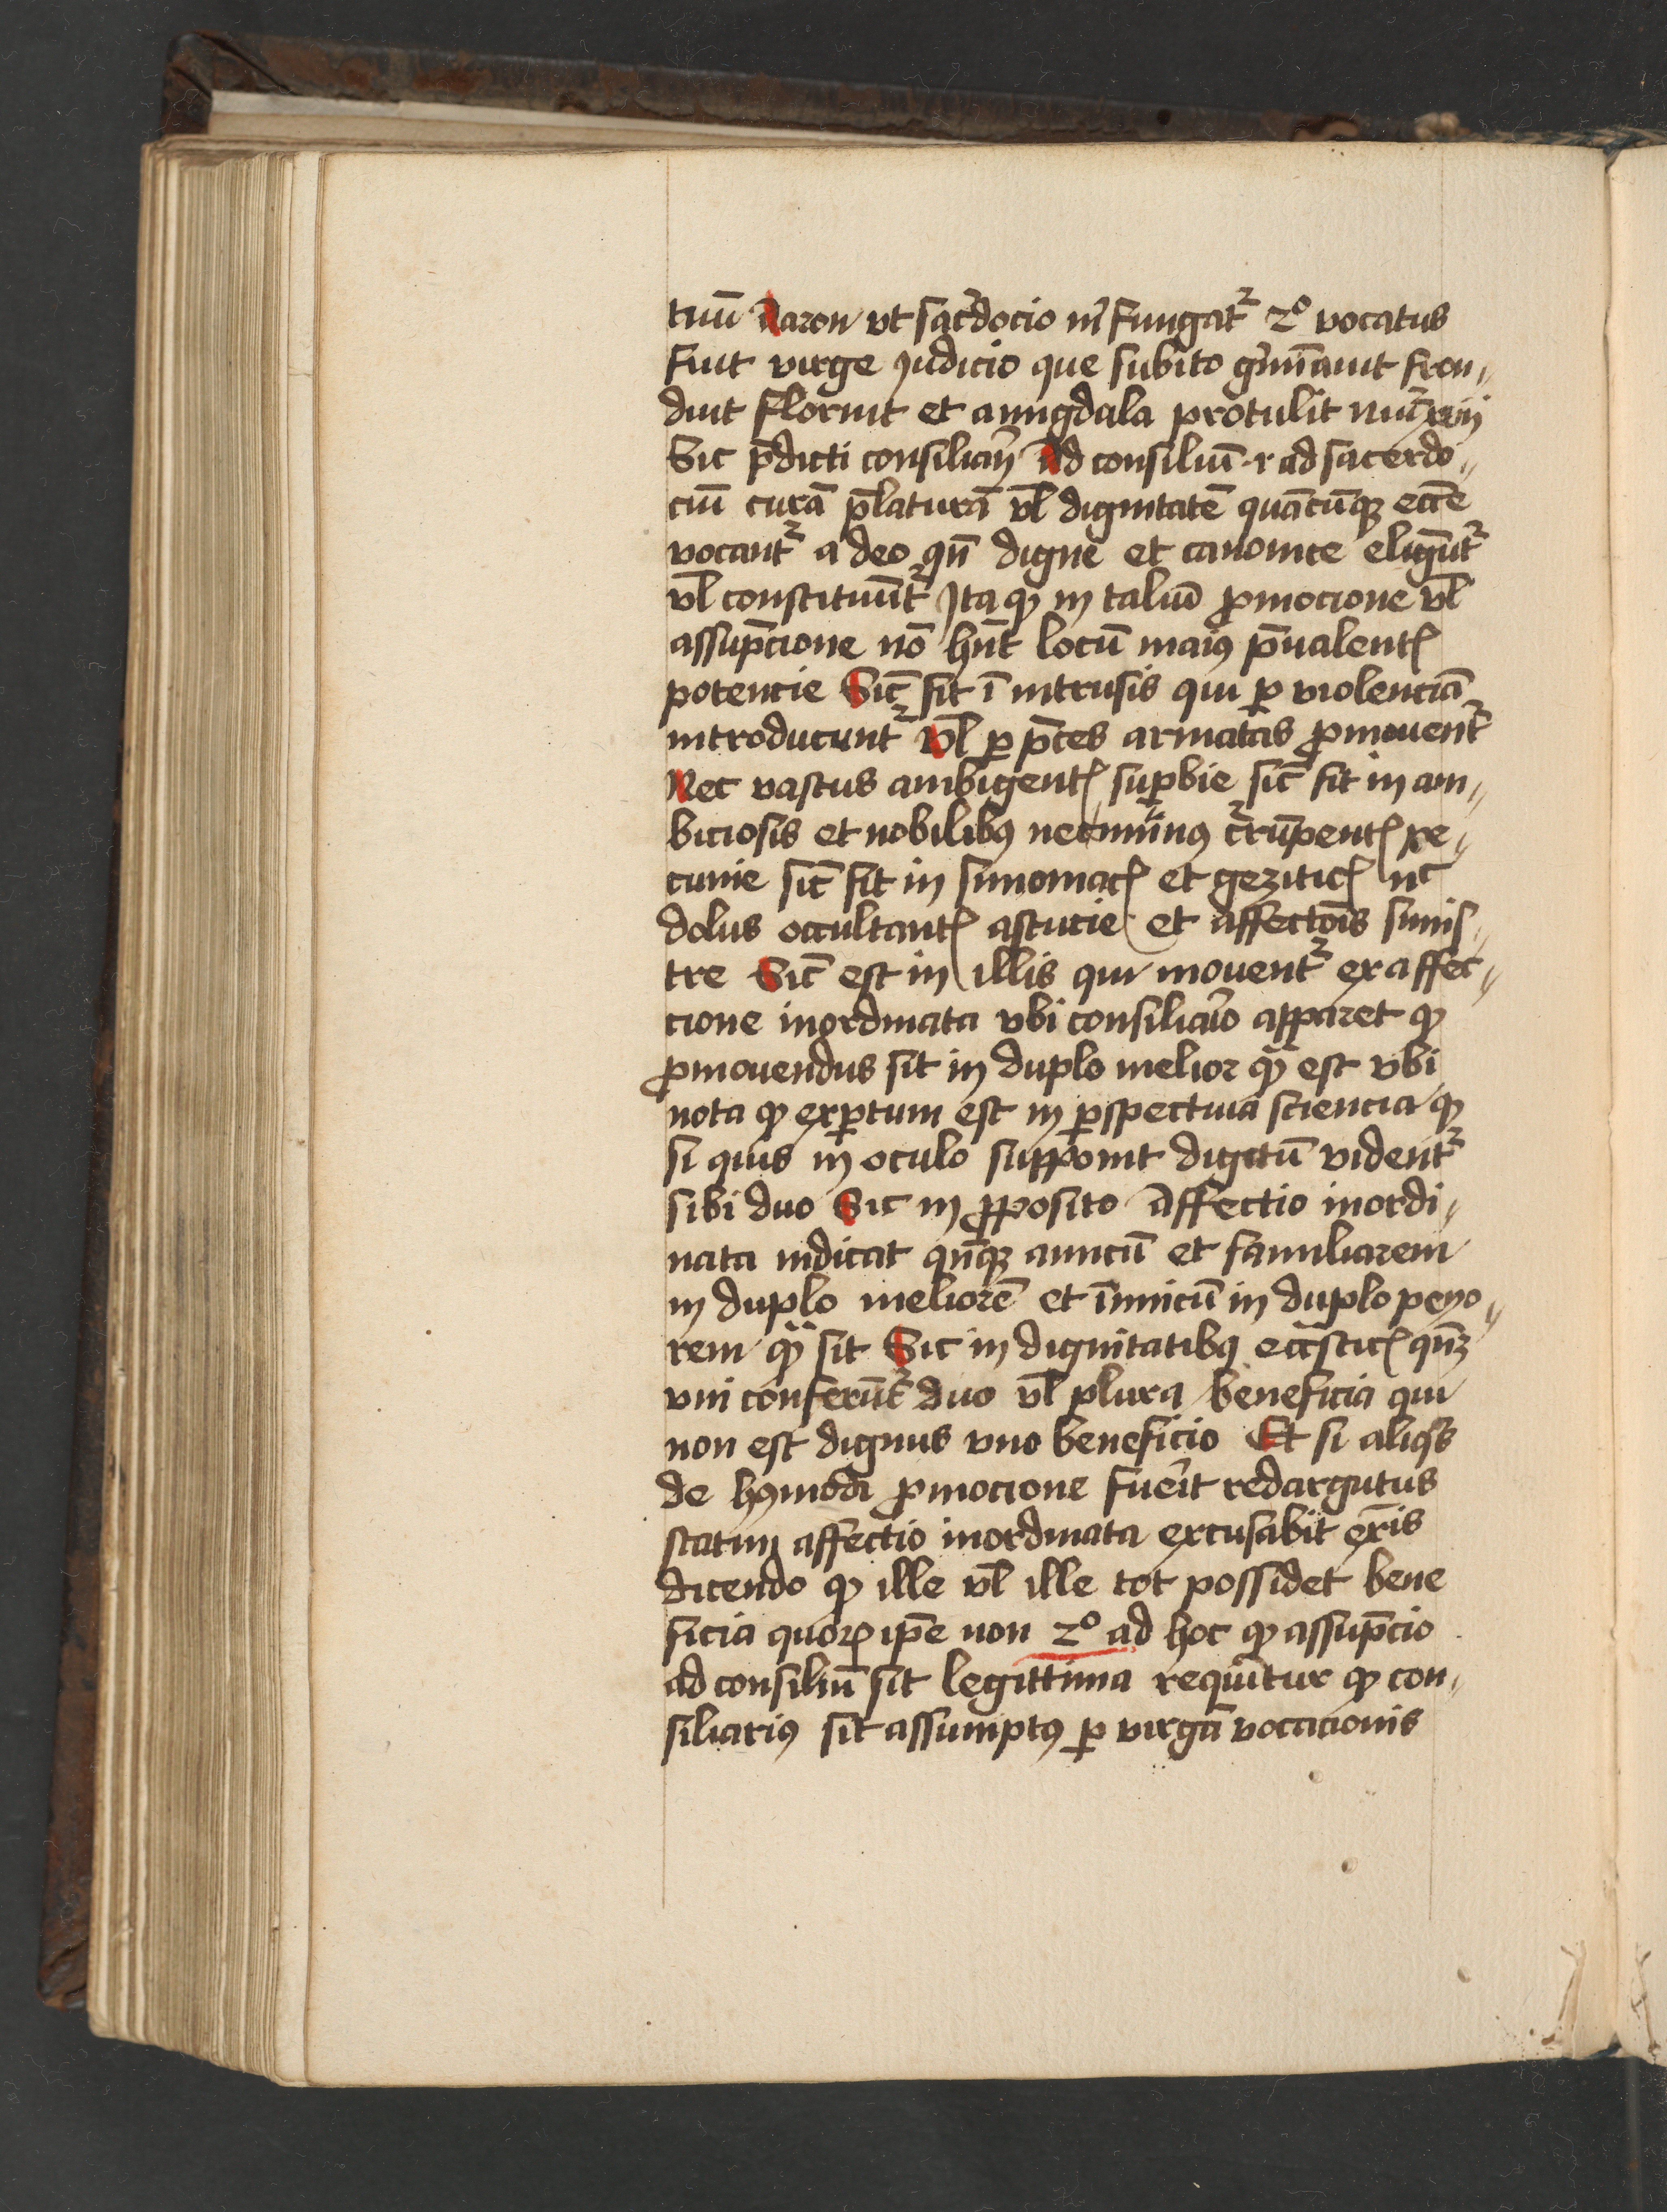 tuū Aaron vt sac̄docio m̄ fungat᷑ 2° vocatus
fuit virge iudicio que subito gm̄īauit fron〃
duit floruit et amigdala protulit nūi xvij
Sic p̄dicti consiliarij Ad consiliū ·r· ad sacerdo〃
ciū curā p̄laturā vl̄ dignitatē quācūqꝫ ecc̄e
vocant᷑ a deo qn̄ digne et canonice eligūt᷑
vl̄ constituūt᷑ Ita ꝙ in taliū ꝓmocione vl̄
assūpcione nō hn̄t locū maiꝰ p̄ualentꝭ
potencie Sic̄ fit ī intrusis qui ꝑ violenciā
introducunt᷑ vl̄ ꝑ p̄ces armatas ꝓmouent᷑
Nec vastus ambigentꝭ suꝑbie sic̄ fit in am〃
biciosis et nobilibꝰ nec minꝰ c᷑rūpentꝭ pe〃
cunie sic̄ fit in simoniacꝭ et geziticꝭ nc̄
dolus occultantꝭ astucie et affectōis sinis〃
tre Sic̄ est in illis qui mouent᷑ ex affec〃
cione inordinata vbi consiliar̄o apparet ꝙ
ꝓmouendus sit in duplo melior qꝫ̄ est vbi
nota ꝙ exꝑtum est in ꝑspectiua sciencia ꝙ
si quis in oculo supponit digitū vident᷑
sibi duo Sic in ꝓposito affectio inordi〃
nata iudicat qn̄qꝫ amicū et familiarem
in duplo meliorē et īimicū in duplo peyo〃
rem qꝫ̄ sit Sic in dignitatibꝰ ecc̄sticꝭ qn̄qꝫ
vni conferūt᷑ duo vl̄ plura beneficia qui
non est dignus vno beneficio Et si aliqͥs
de hꝰmodi ꝓmocione fuer̄it redargutus
statim affectio inordinata excusabit er̄is
dicendo ꝙ ille vl̄ ille tot possidet bene
ficia quoꝝ ip̄e non 2° ad hoc ꝙ assūpcio
ad consiliū sit legittima requir̄itur ꝙ con〃
siliariꝰ sit assumptꝰ ꝑ virgā vocacionis